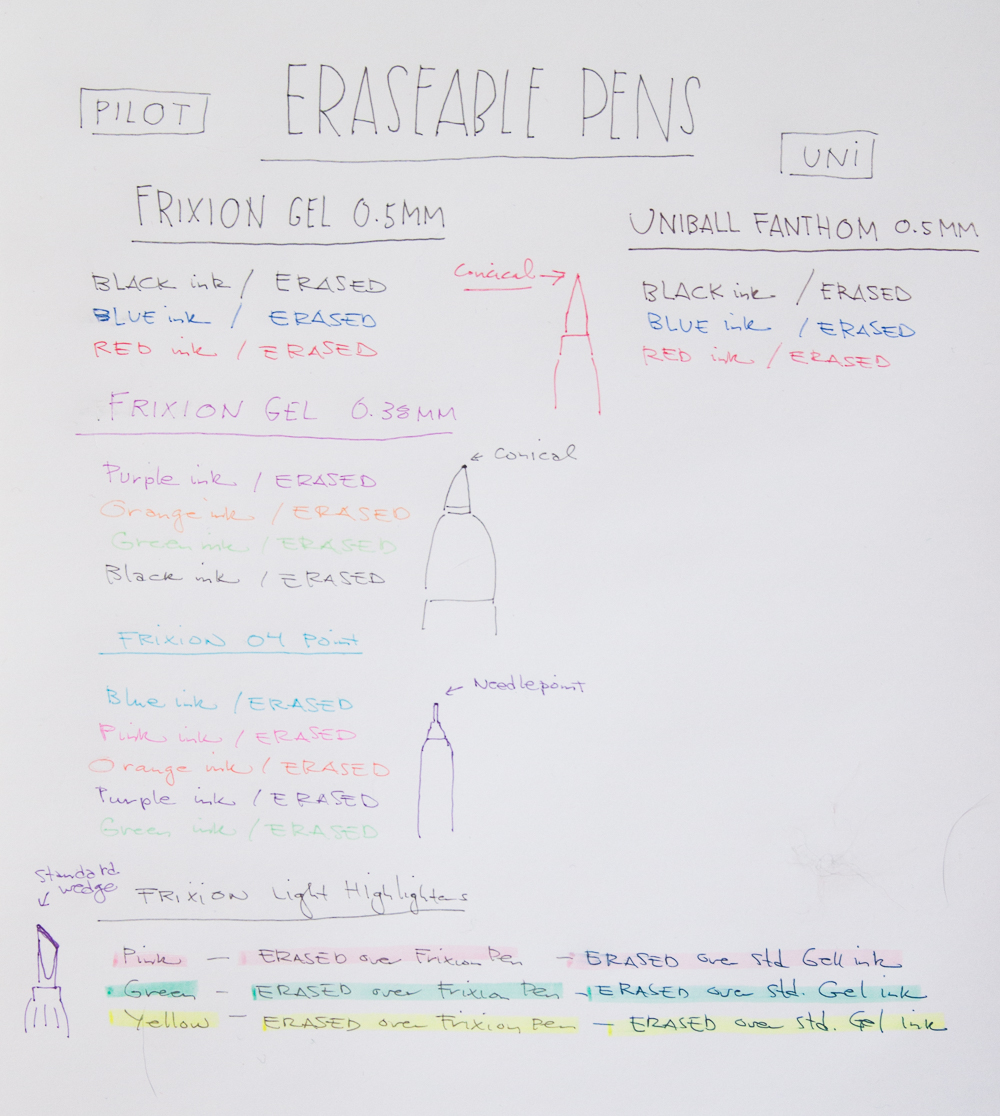 ERASEABLE PENS
PILOT
FRIXION GEL 0.5MM
BLACK ink / ERASED
BLUE ink / ERASED
RED ink / ERASED
Conical →
FRIXION GEL 0.38MM
Purple ink / ERASED
Orange ink / ERASED
Green ink / ERASED
Black ink / ERASED
← Conical
FRIXION 04 Point
Blue ink / ERASED
Pink ink / ERASED
Orange ink / ERASED
Purple ink / ERASED
Green ink / ERASED
Needlepoint
UNi
UNIBALL FANTHOM 0.5MM
BLACK ink / ERASED
BLUE ink / ERASED
RED ink / ERASED
Standard
wedge
FRIXION Light Highlighters
Pink — ERASED over Frixion Pen — ERASED over std Gell ink
Green - ERASED over Frixion Pen - ERASED over std. Gel ink
Yellow — ERASED over Frixion Pen — ERASED over std. Gel ink